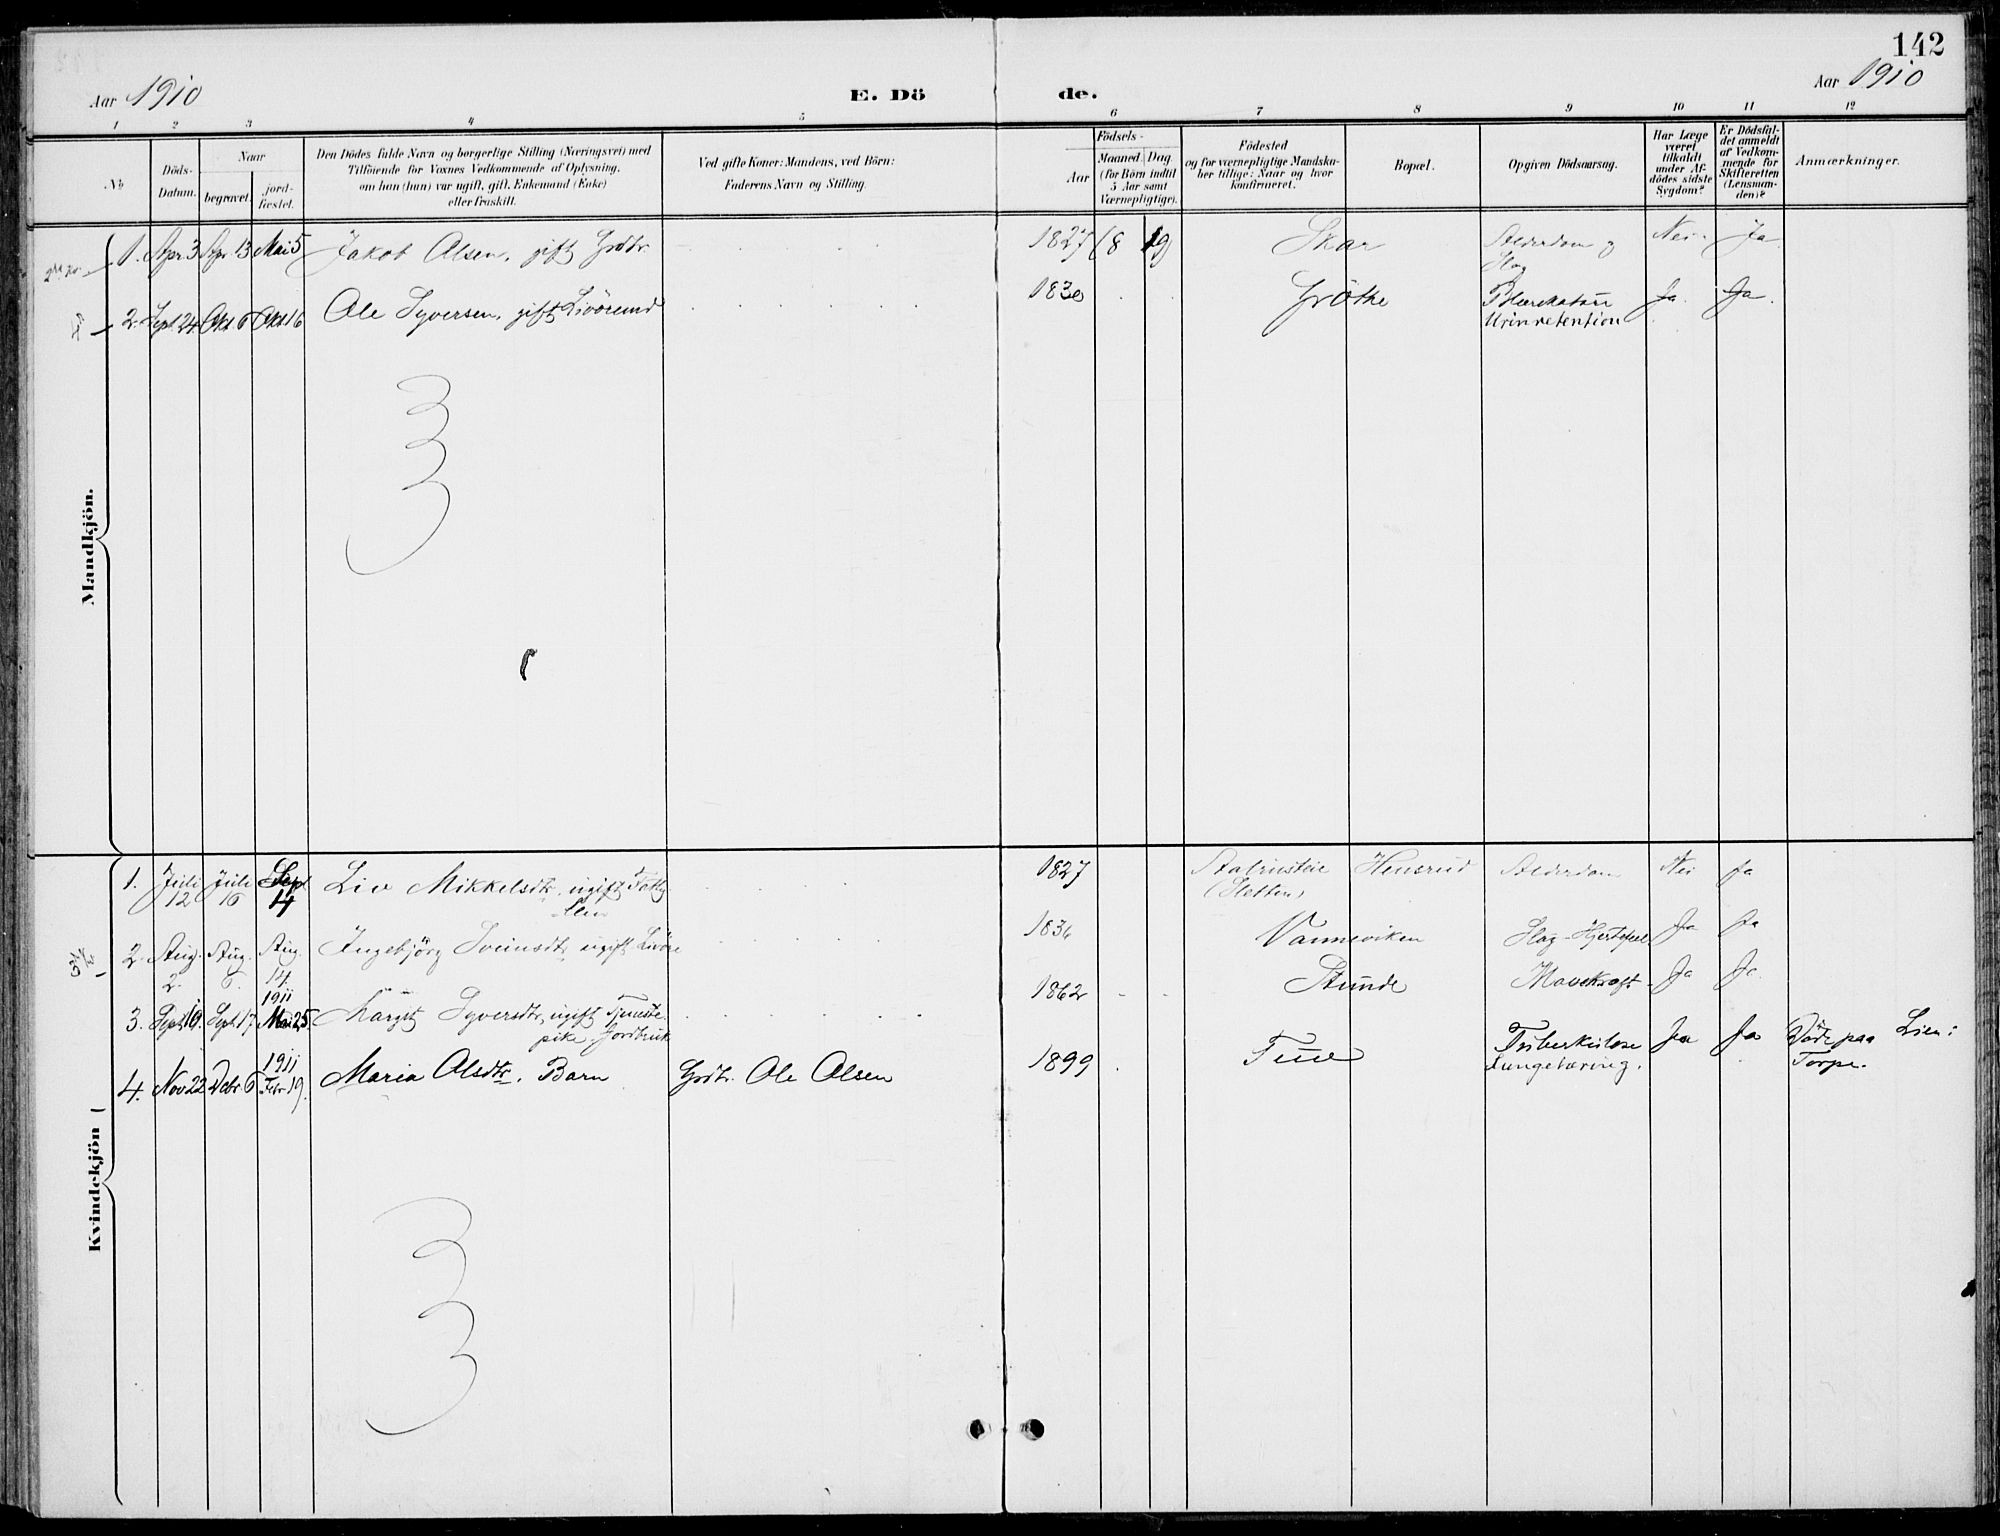 142
Aar 1910
E. Dö de.
Aar 1910
1 2 3 4 5 6 7 8 9 10 11 12
No
Döds-
Datum.
Naar
begravet.
jord-
fæstet.
Den Dödes fulde Navn og borgerlige Stilling (Næringsvei) med
Tilföiende for Voxnes Vedkommende af Oplysning,
om han (hun) var ugift, gift, Enkemand (Enke)
eller fraskilt.
Ved gifte Koner: Mandens, ved Börn:
Faderens Navn og Stilling.
Födsels-
Aar
Maaned. Dag.
(for Börn indtil
5 Aar samt
Værnepligtige).
Födested
og for værnepligtige Mandska-
ber tillige: Naar og hvor
konfirmeret.
Bopæl.
Opgiven Dödsaarsag.
Har Læge
været
tilkaldt
under Af-
dödes sidste
Sygdom?
Er Dödsfal-
det anmeldt
af Vedkom-
mende for
Skifteretten
(Lensman-
den)?
Anmærkninger.
Mandkjön.
1. Apr 3 Apr. 13 Mai 5 Jakob Olsen, gift Grdbr. 1827 (8/19) Skar Alderdom og Nei Ja
Slag
2. Sept. 24 Okt 6 Okt 16 Ole Syversen, gift Livöremd 1830 Gröthe Blærekatarr Ja. Ja.
Urinretention
Kvindekjön
1. Juli Juli Sept. Liv Mikkelsdtr. ugift Fattig- 1827 Hensrud Alderdom Nei Ja
12 16 14 lem (Sletten)
2. Aug. Aug. Aug. Ingebjörg Sveinsdtr. ugift Livöre Vanneviken Slag-Hjertefeil Ja Ja
2. 6. 14.
1911
3. Sept. 10. Sept. 17 Mai 25 Margit Syversdtr, ugift Tjeneste- 1862 Stunde Mavekræft Ja Ja
pike. Jordbruk
1911
4. Nov 22 Debr. 6 Febr 19. Maria Olsdtr. Barn Grdbr. Ole Olsen 1899 Tuberkulose Ja Ja Döde paa Lien i
Lungetæring. Torpe.